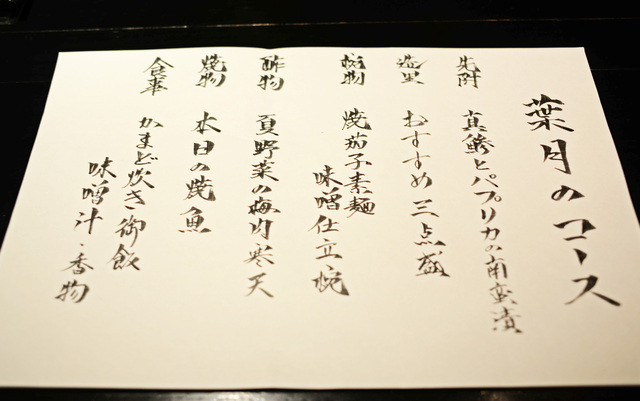 葉月のコース
先附
真鯵とパプリカの南蛮漬
造里
おすすめ三点盛
椀物
焼茄子素麺
味噌仕立椀
酢物
夏野菜の梅肉寒天
焼物
本日の焼魚
食事
かまど炊き御飯
味噌汁・香物